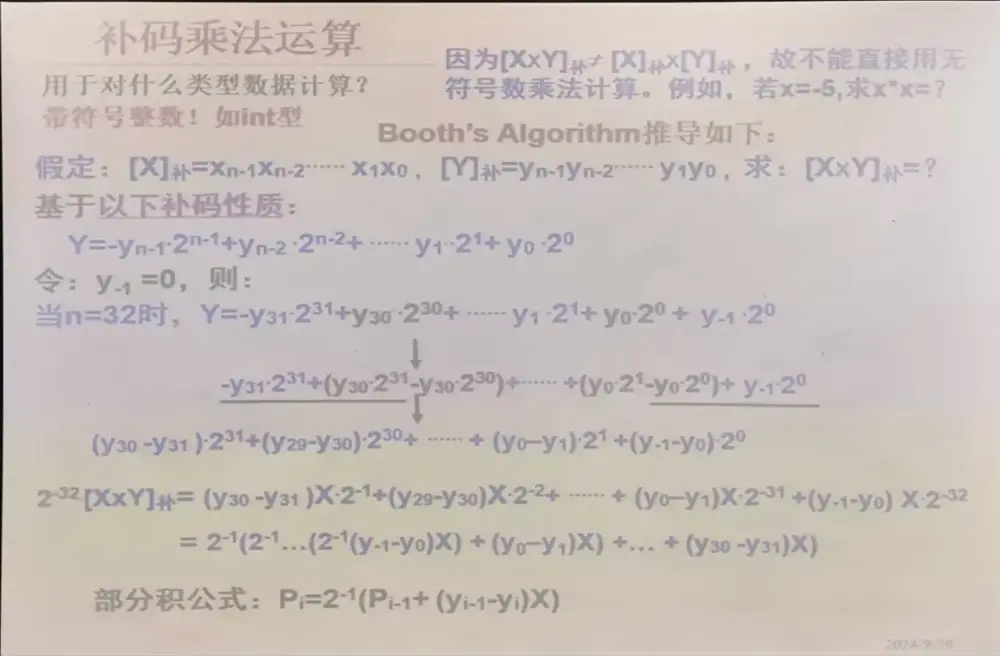 补码乘法运算
用于对什么类型数据计算？
带符号整数！如int型
因为[X×Y]补≠ [X]补×[Y]补，故不能直接用无
符号数乘法计算。例如，若x=-5,求x*x=？
Booth's Algorithm推导如下：
假定：[X]补=xn-1xn-2…… x1x0，[Y]补=yn-1yn-2…… y1y0，求：[X×Y]补=？
基于以下补码性质：
Y=-yn-1·2ⁿ⁻¹+yn-2·2ⁿ⁻²+ …… y1·2¹+ y0·2⁰
令：y-1 =0，则：
当n=32时，Y=-y31·2³¹+y30·2³⁰+ …… y1·2¹+ y0·2⁰ + y-1·2⁰
-y31·2³¹+(y30·2³¹-y30·2³⁰)+…… +(y0·2¹-y0·2⁰)+ y-1·2⁰
(y30 -y31 )·2³¹+(y29-y30)·2³⁰+ …… + (y0–y1)·2¹ +(y-1-y0)·2⁰
2⁻³²[X×Y]补= (y30 -y31 )X·2⁻¹+(y29-y30)X·2⁻²+ …… + (y0–y1)X·2⁻³¹ +(y-1-y0) X·2⁻³²
= 2⁻¹(2⁻¹…(2⁻¹(y-1-y0)X) + (y0–y1)X) +… + (y30 -y31)X)
部分积公式：Pi=2⁻¹(Pi-1+ (yi-1-yi)X)